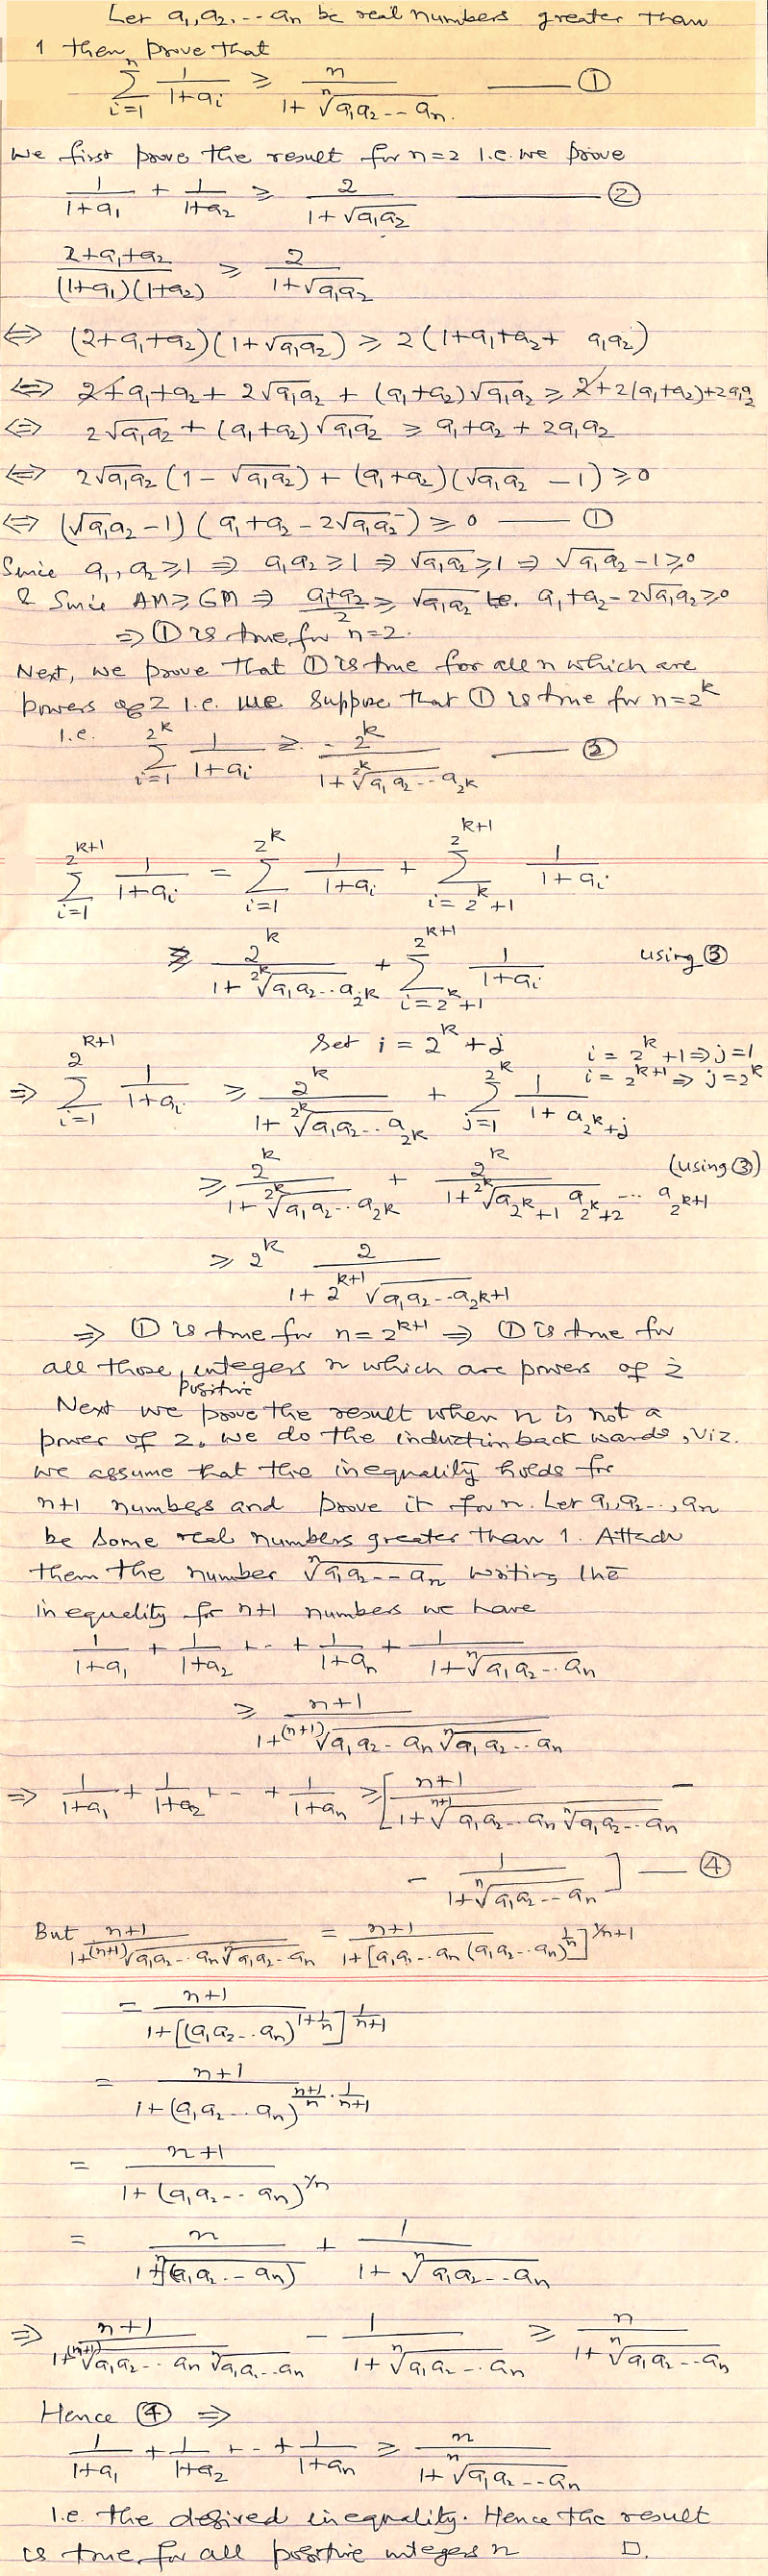 Let a₁, a₂, ... aₙ be real numbers greater than
1 then prove that
∑_{i=1}^{n} 1/(1+aᵢ) ≥ n/(1+ⁿ√(a₁a₂--aₙ)) —— ①
We first prove the result for n=2 i.e. we prove
1/(1+a₁) + 1/(1+a₂) ≥ 2/(1+√(a₁a₂)) —— ②
(2+a₁+a₂)/((1+a₁)(1+a₂)) ≥ 2/(1+√(a₁a₂))
⇔ (2+a₁+a₂)(1+√(a₁a₂)) ≥ 2(1+a₁+a₂+ a₁a₂)
⇔ 2+a₁+a₂+2√(a₁a₂) + (a₁+a₂)√(a₁a₂) ≥ 2+2(a₁+a₂)+2a₁a₂
⇔ 2√(a₁a₂) + (a₁+a₂)√(a₁a₂) ≥ a₁+a₂+2a₁a₂
⇔ 2√(a₁a₂) (1-√(a₁a₂)) + (a₁+a₂)(√(a₁a₂) -1) ≥ 0
⇔ (√(a₁a₂) -1) (a₁+a₂-2√(a₁a₂)) ≥ 0 —— ①
Since a₁, a₂ ≥ 1 ⇒ a₁a₂ ≥ 1 ⇒ √(a₁a₂) ≥ 1 ⇒ √(a₁a₂) -1 ≥ 0
& Since AM ≥ GM ⇒ (a₁+a₂)/2 ≥ √(a₁a₂) i.e. a₁+a₂-2√(a₁a₂) ≥ 0
⇒ ① is true for n=2.
Next, we prove that ① is true for all n which are
powers of 2 i.e. we suppose that ① is true for n=2ᵏ
i.e. ∑_{i=1}^{2^k} 1/(1+aᵢ) ≥ 2^k/(1+^{2^k}√(a₁a₂--a_{2^k})) —— ③
∑_{i=1}^{2^{k+1}} 1/(1+aᵢ) = ∑_{i=1}^{2^k} 1/(1+aᵢ) + ∑_{i=2^k+1}^{2^{k+1}} 1/(1+aᵢ)
≥ 2^k/(1+^{2^k}√(a₁a₂--a_{2^k})) + ∑_{i=2^k+1}^{2^{k+1}} 1/(1+aᵢ) using ③
Set i = 2^k+j i = 2^k+1 ⇒ j=1
i = 2^{k+1} ⇒ j=2^k
⇒ ∑_{i=1}^{2^{k+1}} 1/(1+aᵢ) ≥ 2^k/(1+^{2^k}√(a₁a₂--a_{2^k})) + ∑_{j=1}^{2^k} 1/(1+a_{2^k+j})
≥ 2^k/(1+^{2^k}√(a₁a₂--a_{2^k})) + 2^k/(1+^{2^k}√(a_{2^k+1} a_{2^k+2} --- a_{2^{k+1}})) (using ③)
≥ 2^k 2/(1+^{2^{k+1}}√(a₁a₂--a_{2^{k+1}}))
⇒ ① is true for n=2^{k+1} ⇒ ① is true for
all those positive integers n which are powers of 2
Next we prove the result when n is not a
power of 2. We do the induction backwards, viz.
we assume that the inequality holds for
n+1 numbers and prove it for n. Let a₁, a₂--, aₙ
be some real numbers greater than 1. Attach
them the number ⁿ√(a₁a₂--aₙ) writing the
inequality for n+1 numbers we have
1/(1+a₁) + 1/(1+a₂) + -- + 1/(1+aₙ) + 1/(1+ⁿ√(a₁a₂--aₙ))
≥ (n+1)/(1+^{(n+1)}√(a₁a₂--aₙ ⁿ√(a₁a₂--aₙ)))
⇒ 1/(1+a₁) + 1/(1+a₂) + -- + 1/(1+aₙ) ≥ [(n+1)/(1+^{n+1}√(a₁a₂--aₙ ⁿ√(a₁a₂--aₙ))) -
- 1/(1+ⁿ√(a₁a₂--aₙ))] —— ④
But (n+1)/(1+^{(n+1)}√(a₁a₂--aₙ ⁿ√(a₁a₂--aₙ))) = (n+1)/(1+[a₁a₂--aₙ (a₁a₂--aₙ)^{1/n}]^{1/n+1})
= (n+1)/(1+[(a₁a₂--aₙ)^{1+1/n}]^{1/(n+1)})
= (n+1)/(1+(a₁a₂--aₙ)^{(n+1)/n · 1/(n+1)})
= (n+1)/(1+(a₁a₂--aₙ)^{1/n})
= n/(1+ⁿ√(a₁a₂--aₙ)) + 1/(1+ⁿ√(a₁a₂--aₙ))
⇒ (n+1)/(1+^{(n+1)}√(a₁a₂--aₙ ⁿ√(a₁a₂--aₙ))) - 1/(1+ⁿ√(a₁a₂--aₙ)) ≥ n/(1+ⁿ√(a₁a₂--aₙ))
Hence ④ ⇒
1/(1+a₁) + 1/(1+a₂) + -- + 1/(1+aₙ) ≥ n/(1+ⁿ√(a₁a₂--aₙ))
i.e. the desired inequality. Hence the result
is true for all positive integers n □.